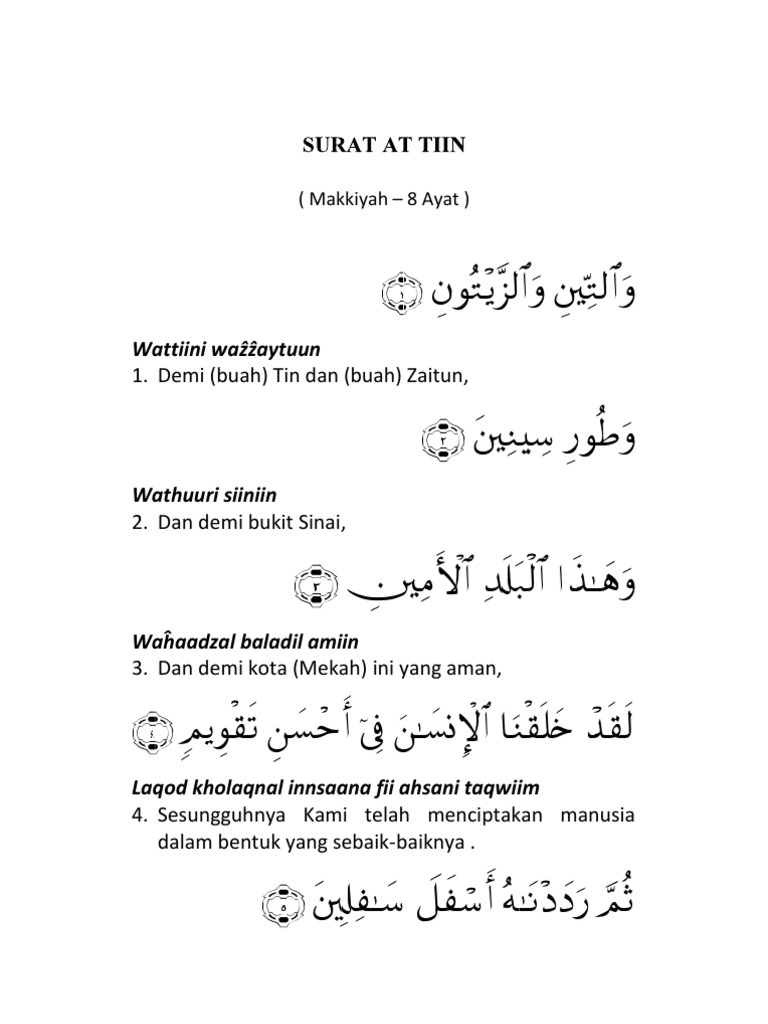 SURAT AT TIIN
( Makkiyah – 8 Ayat )
وَٱلتِّينِ وَٱلزَّيْتُونِ ١
Wattiini waẑẑaytuun
1. Demi (buah) Tin dan (buah) Zaitun,
وَطُورِ سِينِينَ ٢
Wathuuri siiniin
2. Dan demi bukit Sinai,
وَهَـٰذَا ٱلْبَلَدِ ٱلْأَمِينِ ٣
Waĥaadzal baladil amiin
3. Dan demi kota (Mekah) ini yang aman,
لَقَدْ خَلَقْنَا ٱلْإِنسَـٰنَ فِىٓ أَحْسَنِ تَقْوِيمٍ ٤
Laqod kholaqnal innsaana fii ahsani taqwiim
4. Sesungguhnya Kami telah menciptakan manusia
dalam bentuk yang sebaik-baiknya .
ثُمَّ رَدَدْنَـٰهُ أَسْفَلَ سَـٰفِلِينَ ٥